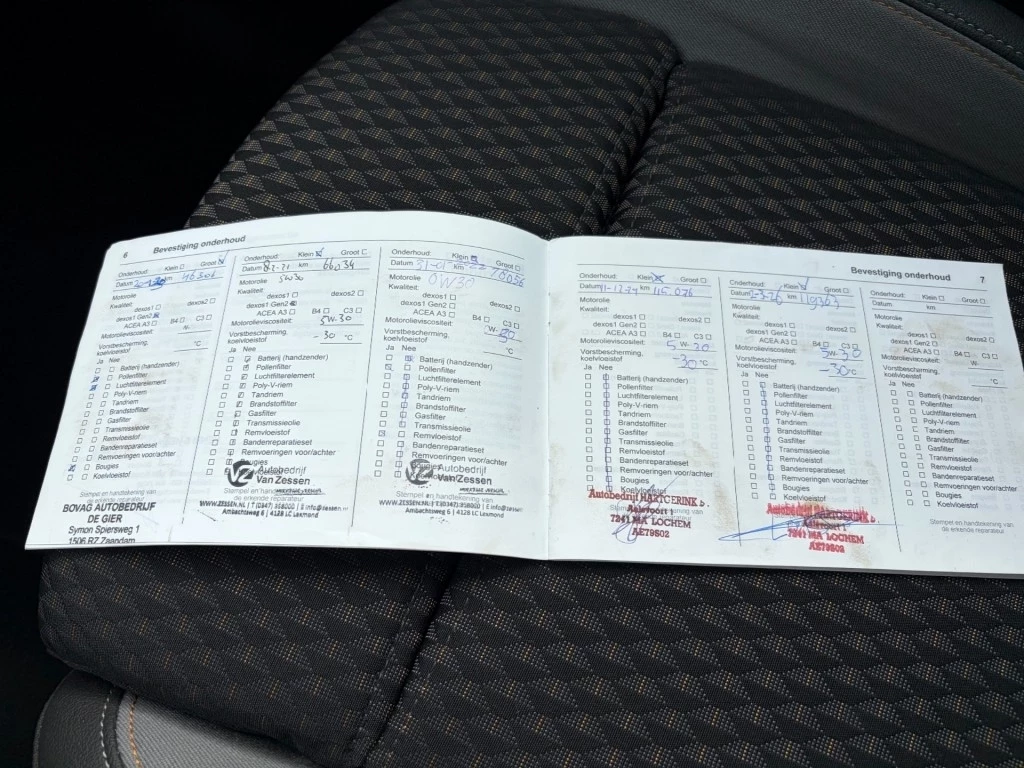 6
Bevestiging onderhoud
Onderhoud: Klein Groot
Datum km 46301
Motorolie
Kwaliteit:
dexos1 dexos2
dexos1 Gen2
ACEA A3 B4 C3
Motorolieviscositeit: W-
Vorstbescherming, koelvloeistof °C
Ja Nee
Batterij (handzender)
Pollenfilter
Luchtfilterelement
Poly-V-riem
Tandriem
Brandstoffilter
Gasfilter
Transmissieolie
Remvloeistof
Bandenreparatieset
Remvoeringen voor/achter
Bougies
Koelvloeistof
Stempel en handtekening van
de erkende reparateur
BOVAG AUTOBEDRIJF
DE GIER
Symon Spiersweg 1
1506 RZ Zaandam
Onderhoud: Klein Groot
Datum km 66034
Motorolie 5W30
Kwaliteit:
dexos1 dexos2
dexos1 Gen2
ACEA A3 B4 C3
Motorolieviscositeit: 5W-30
Vorstbescherming, koelvloeistof -30 °C
Ja Nee
Batterij (handzender)
Pollenfilter
Luchtfilterelement
Poly-V-riem
Tandriem
Brandstoffilter
Gasfilter
Transmissieolie
Remvloeistof
Bandenreparatieset
Remvoeringen voor/achter
Bougies
VZ Autobedrijf
Van Zessen
WWW.ZESSEN.NL | T (0347)
Ambachtsweg 6 | 4128 LC Lexmond
Onderhoud: Klein Groot
Datum km
Motorolie 0W30
Kwaliteit:
dexos1 dexos2
dexos1 Gen2
ACEA A3 B4 C3
Motorolieviscositeit: W-30
Vorstbescherming, koelvloeistof °C
Ja Nee
Batterij (handzender)
Pollenfilter
Luchtfilterelement
Poly-V-riem
Tandriem
Brandstoffilter
Gasfilter
Transmissieolie
Remvloeistof
Bandenreparatieset
Remvoeringen voor/achter
VZ Autobedrijf
Van Zessen
WWW.ZESSEN.NL
Ambachtsweg 6 | 4128 LC Lexmond
Bevestiging onderhoud
7
Onderhoud: Klein Groot
Datum 11-12-24 km 115.076
Motorolie
Kwaliteit:
dexos1 dexos2
dexos1 Gen2
ACEA A3 B4 C3
Motorolieviscositeit: 5W-30
Vorstbescherming, koelvloeistof -30 °C
Ja Nee
Batterij (handzender)
Pollenfilter
Luchtfilterelement
Poly-V-riem
Tandriem
Brandstoffilter
Gasfilter
Transmissieolie
Remvloeistof
Bandenreparatieset
Remvoeringen voor/achter
Bougies
Koelvloeistof
Autobedrijf HARTGERINK b.
Aalsvoort 1
7241 MA LOCHEM
AE79S02
Onderhoud: Klein Groot
Datum km
Motorolie
Kwaliteit:
dexos1 dexos2
dexos1 Gen2
ACEA A3 B4 C3
Motorolieviscositeit: 5W-30
Vorstbescherming, koelvloeistof -30 °C
Ja Nee
Batterij (handzender)
Pollenfilter
Luchtfilterelement
Poly-V-riem
Tandriem
Brandstoffilter
Gasfilter
Transmissieolie
Remvloeistof
Bandenreparatieset
Remvoeringen voor/achter
Bougies
Koelvloeistof
Autobedrijf HARTGERINK b.
Aalsvoort 1
7241 MA LOCHEM
AE79S02
Onderhoud: Klein Groot
Datum km
Motorolie
Kwaliteit:
dexos1 dexos2
dexos1 Gen2
ACEA A3 B4 C3
Motorolieviscositeit: W-
Vorstbescherming, koelvloeistof °C
Ja Nee
Batterij (handzender)
Pollenfilter
Luchtfilterelement
Poly-V-riem
Tandriem
Brandstoffilter
Gasfilter
Transmissieolie
Remvloeistof
Bandenreparatieset
Remvoeringen voor/achter
Bougies
Koelvloeistof
Stempel en handtekening van
de erkende reparateur